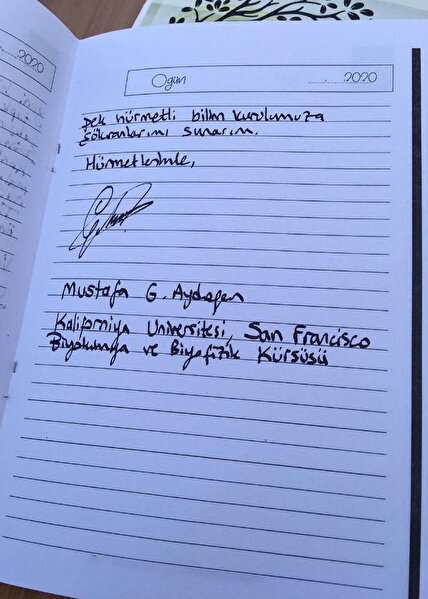 .2020
Ogün
.2020
Pek hürmetli bilim kurulumuza
şükranlarımı sunarım.
Hürmetlerimle,
Mustafa G. Aydogan
Kaliforniya Üniversitesi, San Francisco
Biyokimya ve Biyofizik Kürsüsü